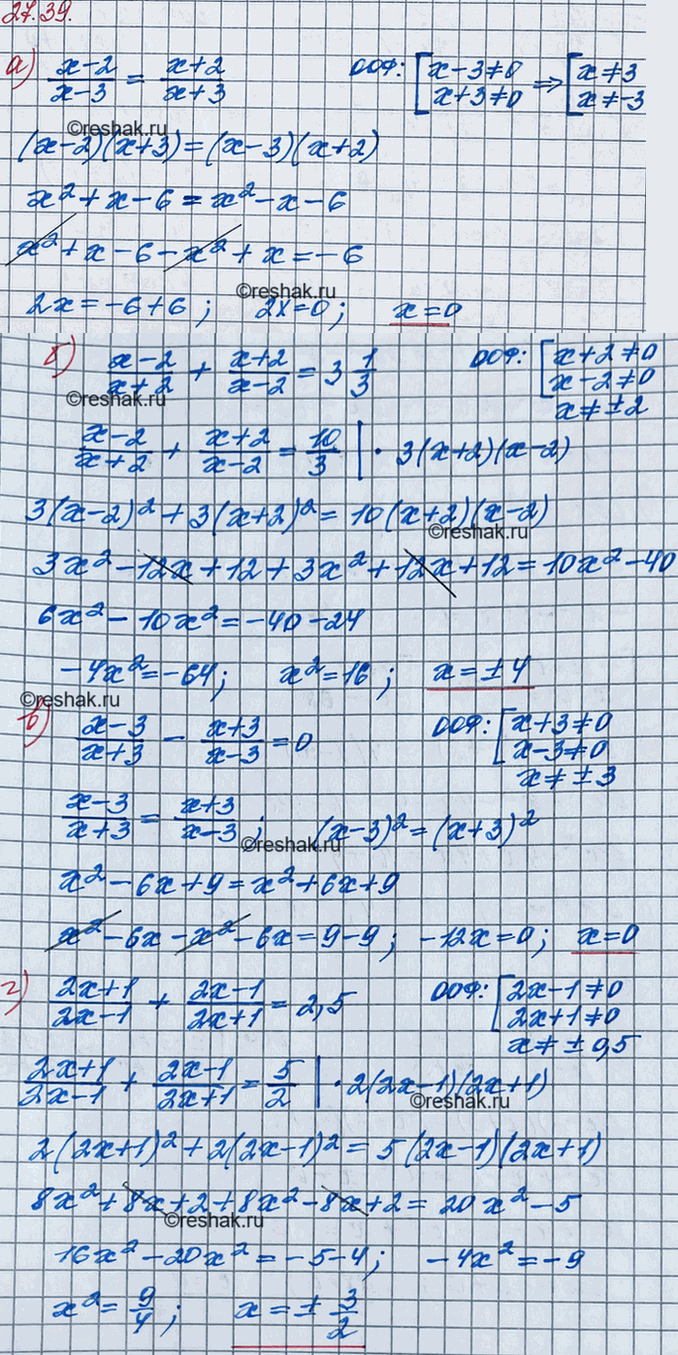 27.39.
а) x-2/x-3 = x+2/x+3 ООФ: [x-3≠0 x+3≠0 ⇒ [x≠3 x≠-3
©reshak.ru
(x-2)(x+3)=(x-3)(x+2)
x²+x-6=x²-x-6
x²+x-6-x²+x=-6
©reshak.ru
2x=-6+6; 2x=0; x=0
б) x-2/x+2 + x+2/x-2 = 3 1/3 ООФ: [x+2≠0 x-2≠0
©reshak.ru
x≠±2
x-2/x+2 + x+2/x-2 = 10/3 | · 3(x+2)(x-2)
3(x-2)²+3(x+2)²=10(x+2)(x-2)
©reshak.ru
3x²-12x+12+3x²+12x+12=10x²-40
6x²-10x²=-40-24
-4x²=-64; x²=16; x=±4
©reshak.ru
в) x-3/x+3 - x+3/x-3 = 0 ООФ: [x+3≠0 x-3≠0
x≠±3
x-3/x+3 = x+3/x-3; (x-3)²=(x+3)²
©reshak.ru
x²-6x+9=x²+6x+9
x²-6x-x²-6x=9-9; -12x=0; x=0
г) 2x+1/2x-1 + 2x-1/2x+1 = 2,5 ООФ: [2x-1≠0 2x+1≠0
x≠±0,5
2x+1/2x-1 + 2x-1/2x+1 = 5/2 | · 2(2x-1)(2x+1)
©reshak.ru
2(2x+1)²+2(2x-1)²=5(2x-1)(2x+1)
8x²+8x+2+8x²-8x+2=20x²-5
©reshak.ru
16x²-20x²=-5-4; -4x²=-9
x²=9/4; x=±3/2